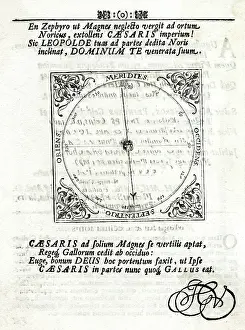 :(0):
En Zephyro ut Magnes neglecto vergit ad ortum
Noricus, extollens CÆSARIS imperium!
Sic LEOPOLDE tuas ad partes dedita Noris
inclinat, DOMINUM TE venerata suum.
MERIDIES
ORIENS
OCCIDENS
SEPTENTRIO
CÆSARIS ad solium Magnes se vertilis aptat,
Regeq; Gallorum cedit ab occiduo:
Euge, bonum DEUS hoc portentum faxit, ut Ipse
CÆSARIS in partes nunc quoq; GALLUS eat.